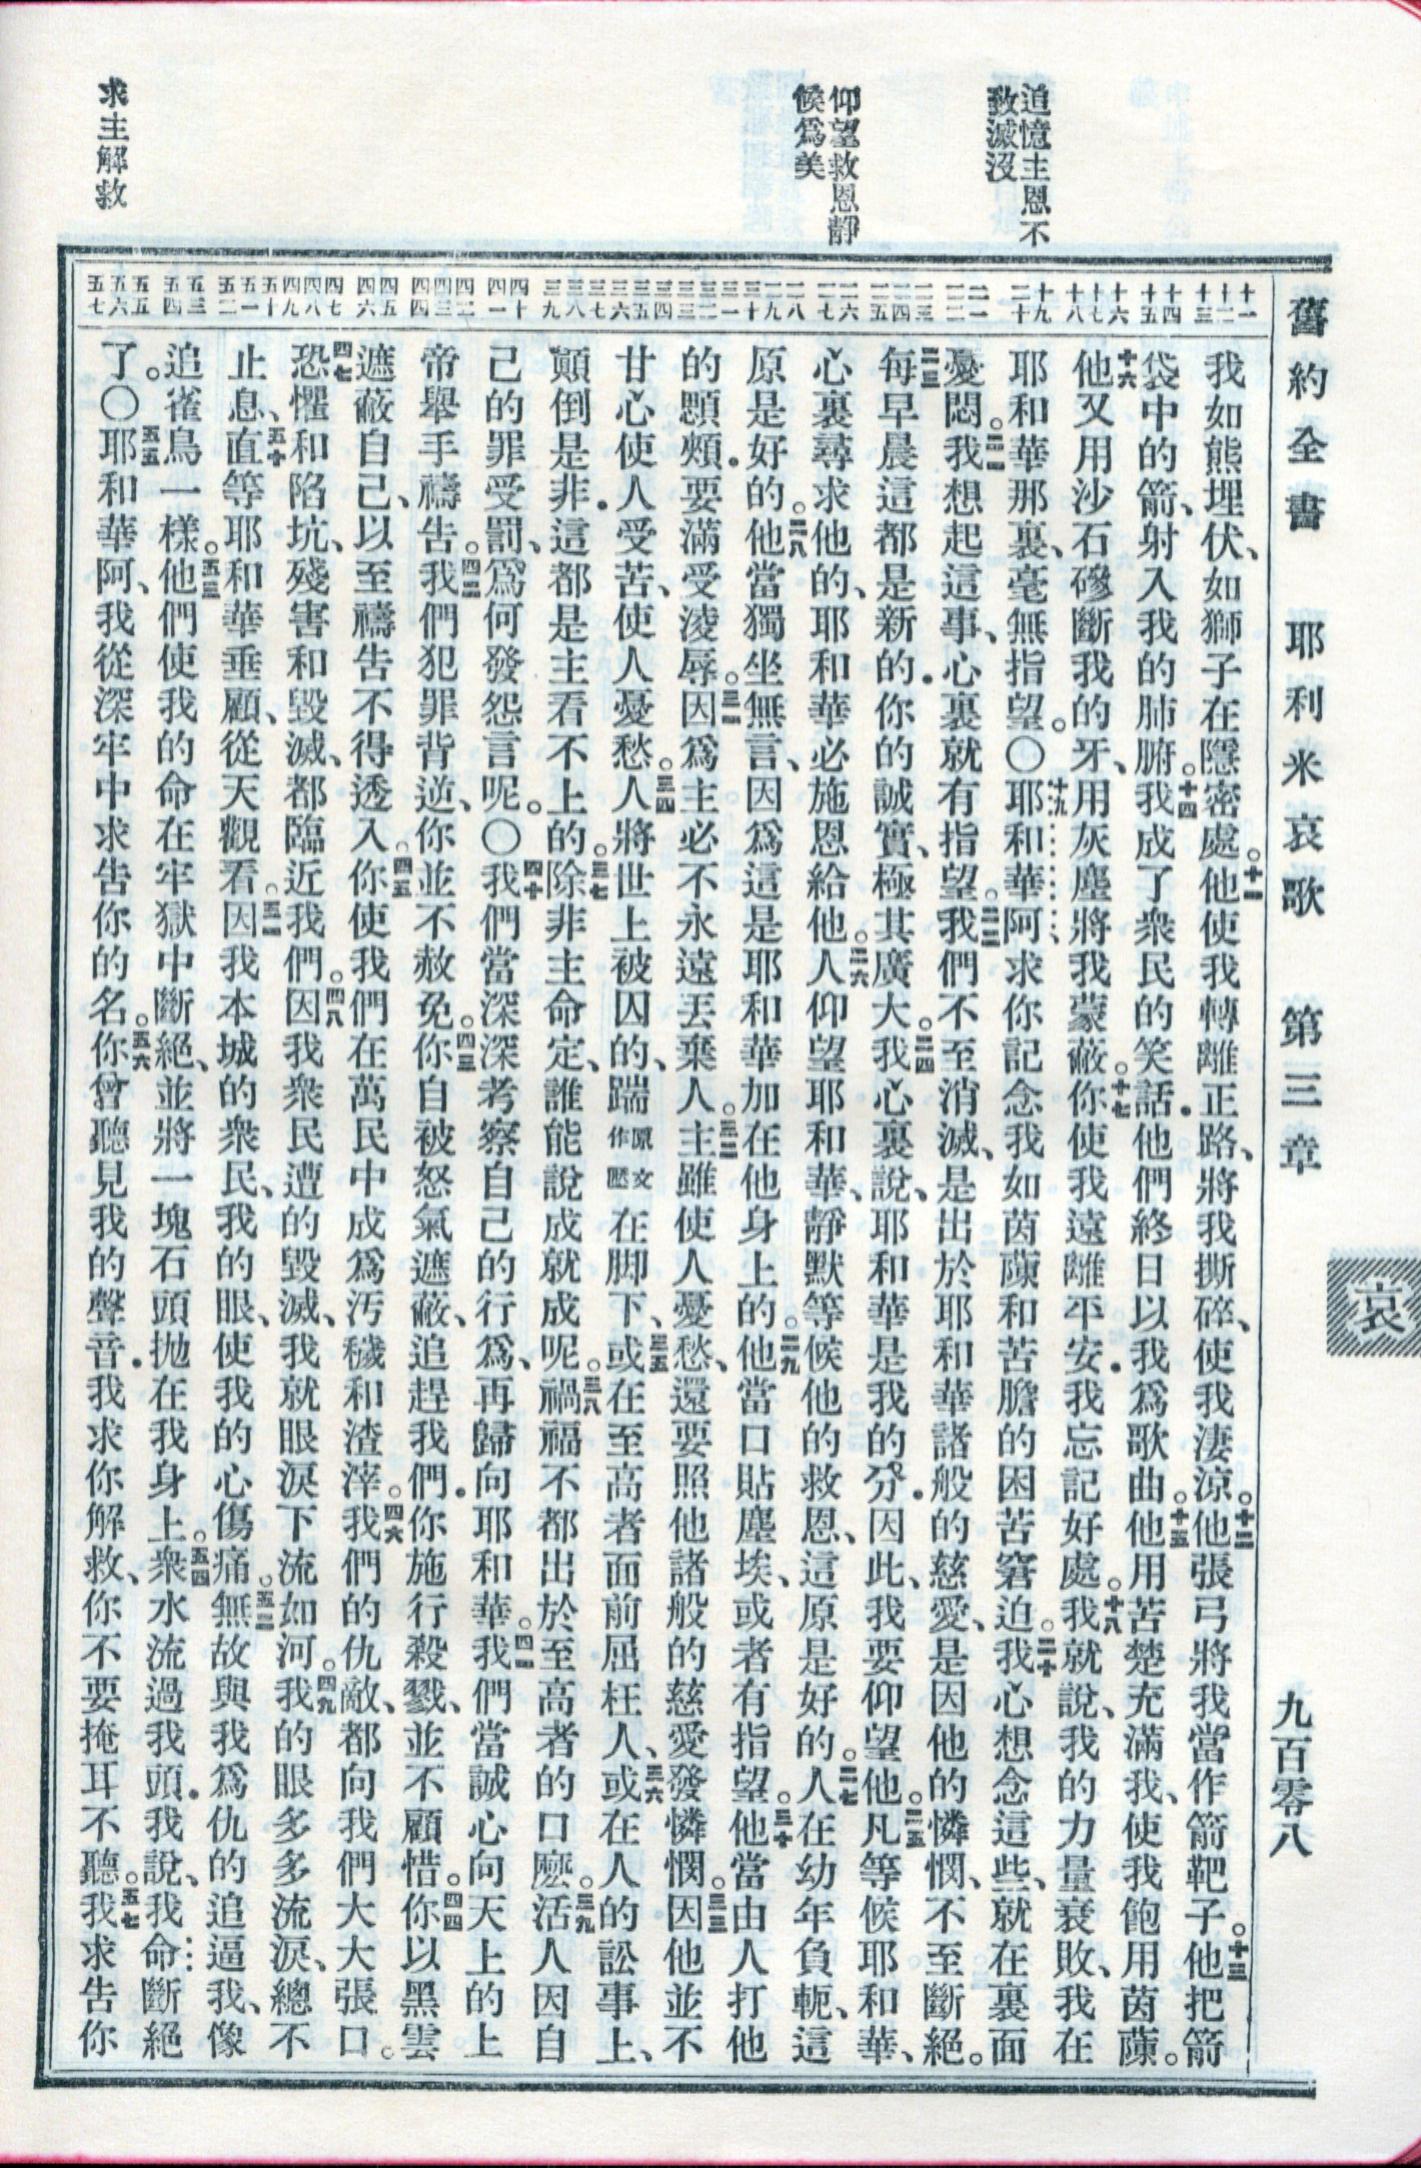 舊約全書　耶利米哀歌　第三章　九百零八
哀
追憶主恩不
致滅沒
仰望救恩靜
候爲美
求主解救
十一
十二
十三
十四
十五
十六
十七
十八
十九
二十
二一
二二
二三
二四
二五
二六
二七
二八
二九
三十
三一
三二
三三
三四
三五
三六
三七
三八
三九
四十
四一
四二
四三
四四
四五
四六
四七
四八
四九
五十
五一
五二
五三
五四
五五
五六
五七
我如熊埋伏、如獅子在隱密處。十一他使我轉離正路、將我撕碎、使我淒涼。十二他張弓將我當作箭靶子。十三他把箭
袋中的箭、射入我的肺腑。十四我成了衆民的笑話．他們終日以我爲歌曲。十五他用苦楚充滿我、使我飽用茵蔯。
十六他又用沙石磣斷我的牙、用灰塵將我蒙蔽。十七你使我遠離平安．我忘記好處。十八我就說、我的力量衰敗、我在
耶和華那裏、毫無指望。〇十九耶和華阿、求你記念我如茵蔯和苦膽的困苦窘迫。二十我心想念這些、就在裏面
憂悶。二一我想起這事、心裏就有指望。二二我們不至消滅、是出於耶和華諸般的慈愛、是因他的憐憫、不至斷絕。
二三每早晨這都是新的．你的誠實、極其廣大。二四我心裏說、耶和華是我的分．因此、我要仰望他。二五凡等候耶和華、
心裏尋求他的、耶和華必施恩給他。二六人仰望耶和華、靜默等候他的救恩、這原是好的。二七人在幼年負軛、這
原是好的。二八他當獨坐無言、因爲這是耶和華加在他身上的。二九他當口貼塵埃、或者有指望。三十他當由人打他
的顋頰．要滿受凌辱。三一因爲主必不永遠丟棄人。三二主雖使人憂愁、還要照他諸般的慈愛發憐憫。三三因他並不
甘心使人受苦、使人憂愁。三四人將世上被囚的、踹原文作壓在脚下、三五或在至高者面前屈枉人、三六或在人的訟事上、
顚倒是非．這都是主看不上的。三七除非主命定、誰能說成就成呢。三八禍福不都出於至高者的口麼。三九活人因自
己的罪受罰、爲何發怨言呢。〇四十我們當深深考察自己的行爲、再歸向耶和華。四一我們當誠心向天上的上
帝舉手禱告。四二我們犯罪背逆、你並不赦免。四三你自被怒氣遮蔽、追趕我們．你施行殺戮、並不顧惜。四四你以黑雲
遮蔽自己、以至禱告不得透入。四五你使我們在萬民中成爲汚穢和渣滓。四六我們的仇敵、都向我們大大張口。
四七恐懼和陷坑、殘害和毀滅、都臨近我們。四八因我衆民遭的毀滅、我就眼淚下流如河。四九我的眼多多流淚、總不
止息、五十直等耶和華垂顧、從天觀看。五一因我本城的衆民、我的眼、使我的心傷痛。五二無故與我爲仇的追逼我、像
追雀鳥一樣。五三他們使我的命在牢獄中斷絕、並將一塊石頭拋在我身上。五四衆水流過我頭．我說、我命斷絕
了。〇五五耶和華阿、我從深牢中求告你的名。五六你曾聽見我的聲音．我求你解救、你不要掩耳不聽。五七我求告你